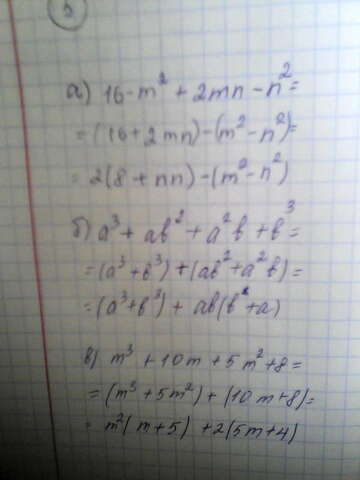 5
а) 16-m² + 2mn - n² =
= (16 + 2mn) - (m² - n²) =
= 2(8 + nn) - (m² - n²)
б) a³ + ab² + a²b + b³ =
= (a³ + b³) + (ab² + a²b) =
= (a³ + b³) + ab(b + a)
в) m³ + 10m + 5m² + 8 =
= (m³ + 5m²) + (10m + 8) =
= m²(m + 5) + 2(5m + 4)